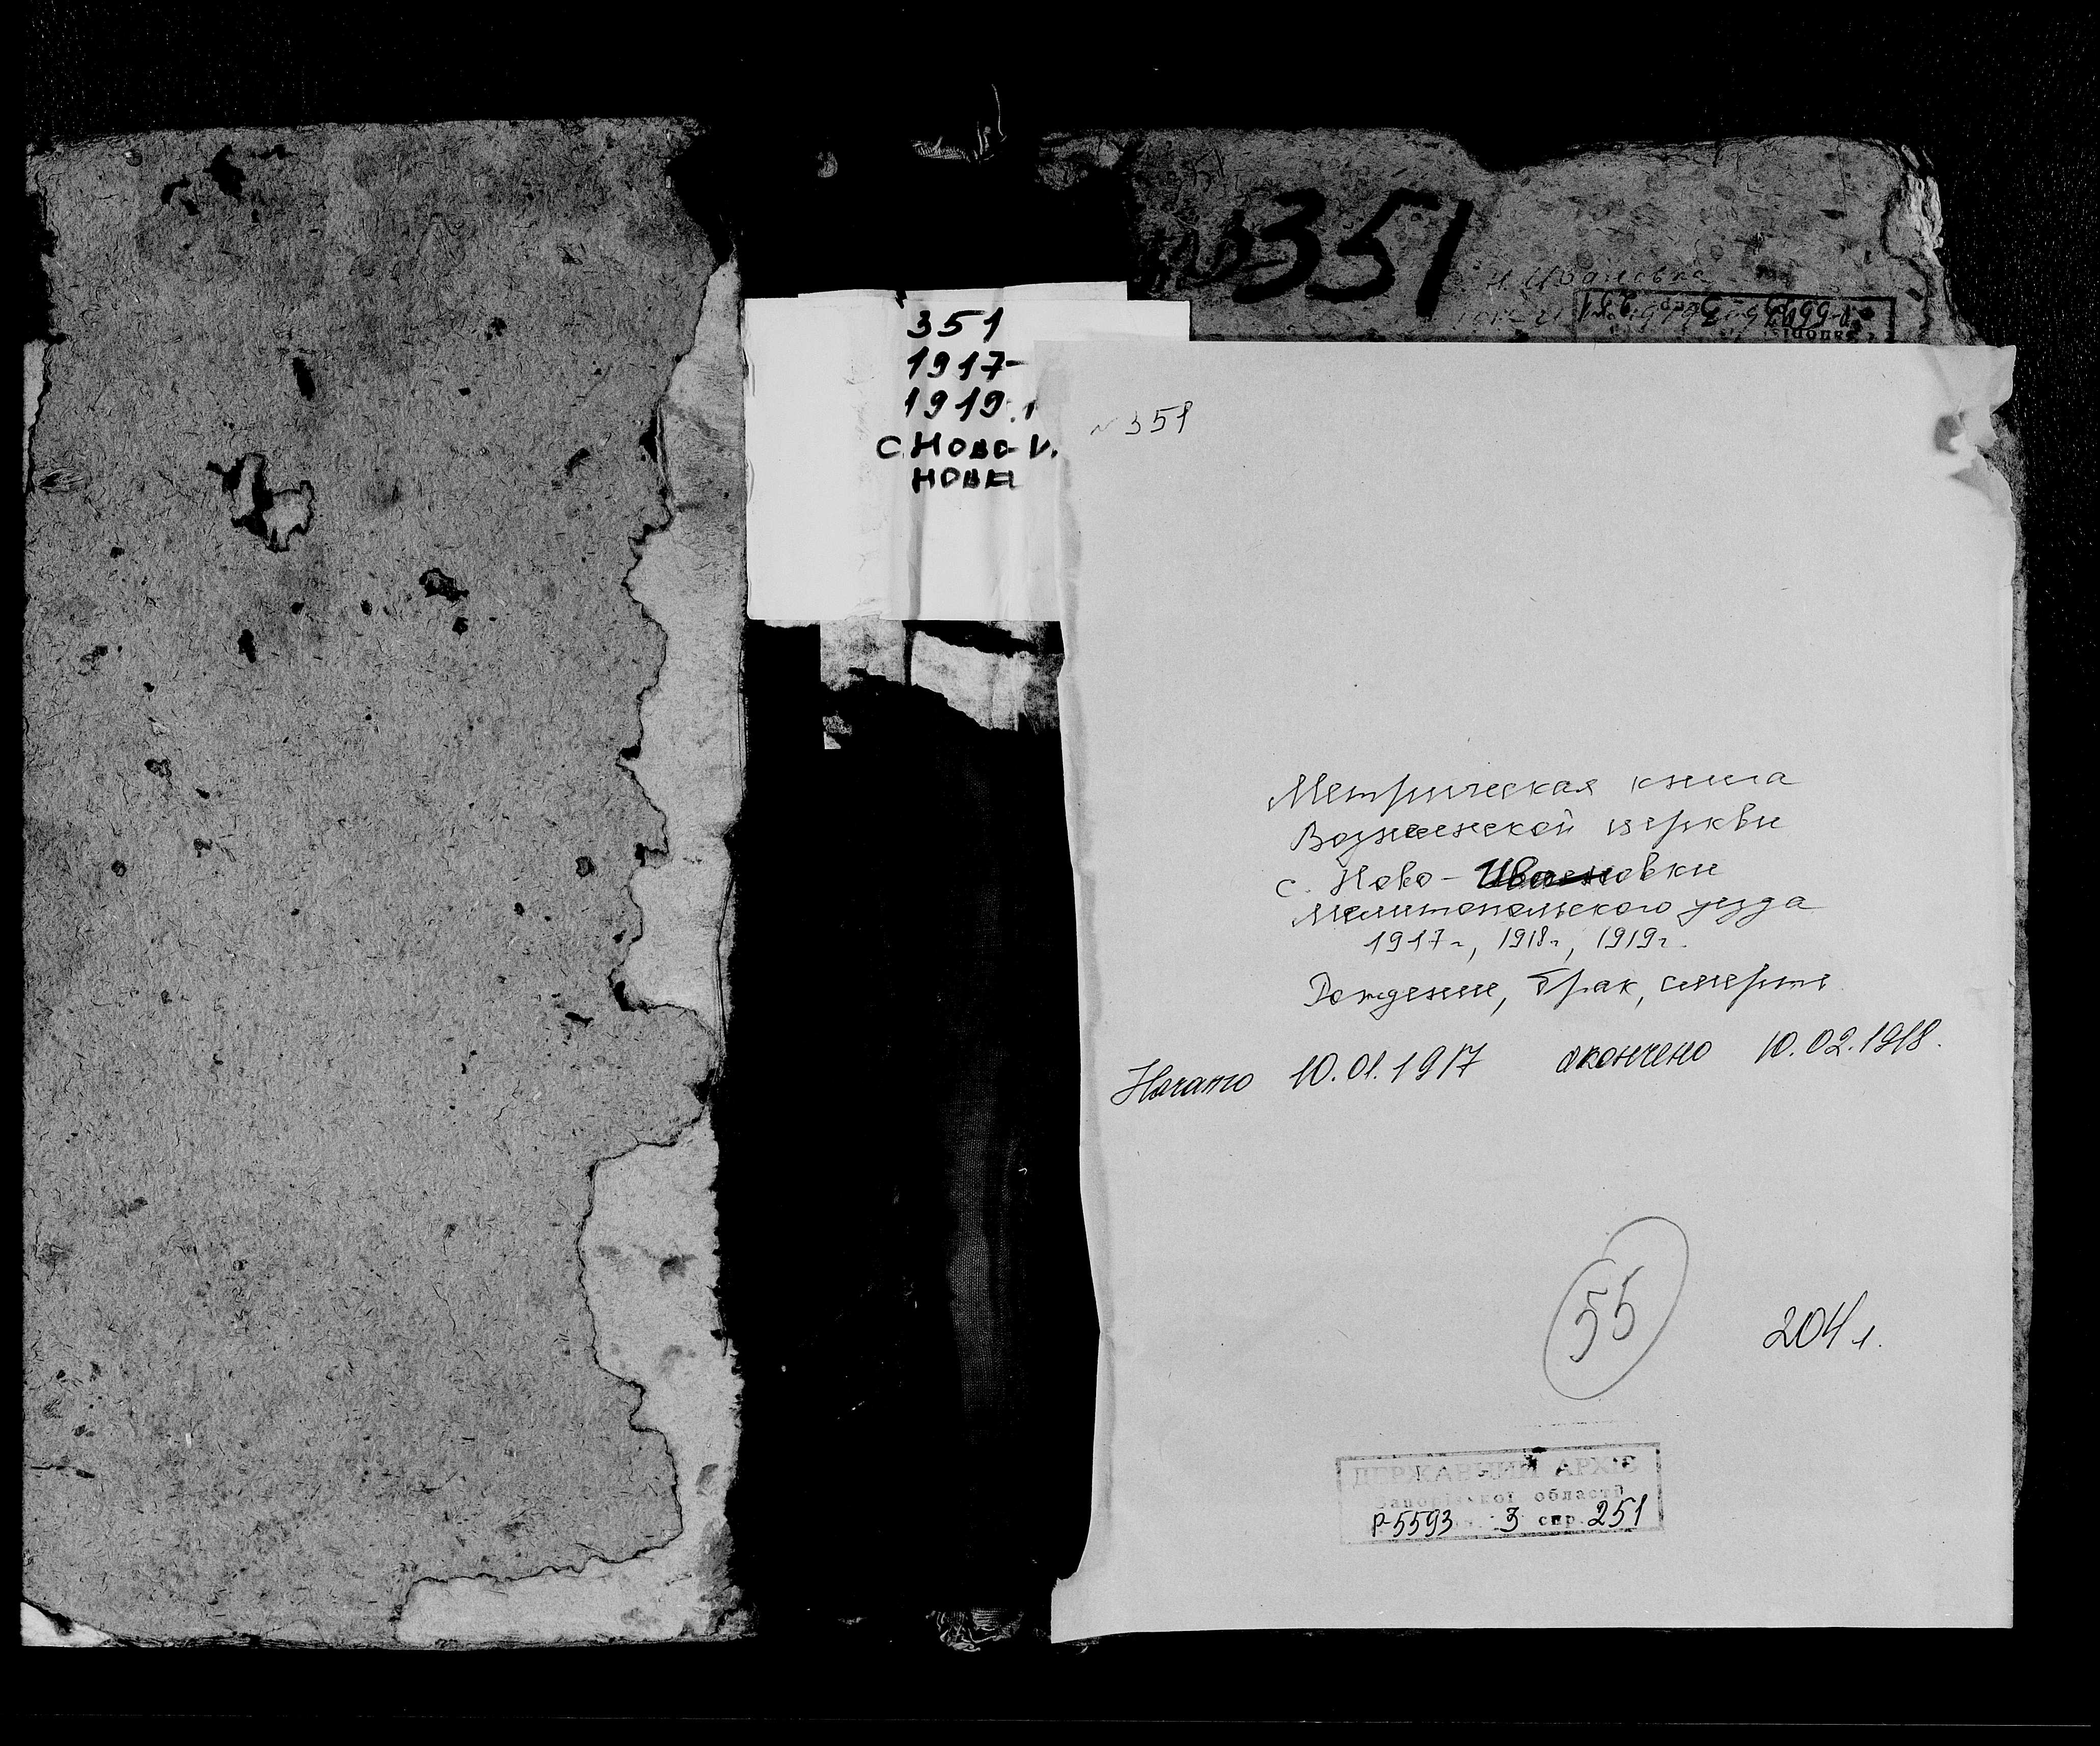 №351
351
1917-
1919
с. Ново-И.
новк
№ 351
Метрическая книга
Вознесенской церкви
с. Ново-Ивановки
Мелитопольского уезда
1917г, 1918г, 1919г.
Рождение, брак, смерть
Начато 10.01.1917 окончено 10.02.1918.
55
204 л.
ДЕРЖАВНИЙ АРХІВ
Запорізької області
Р-5593 3 спр. 251